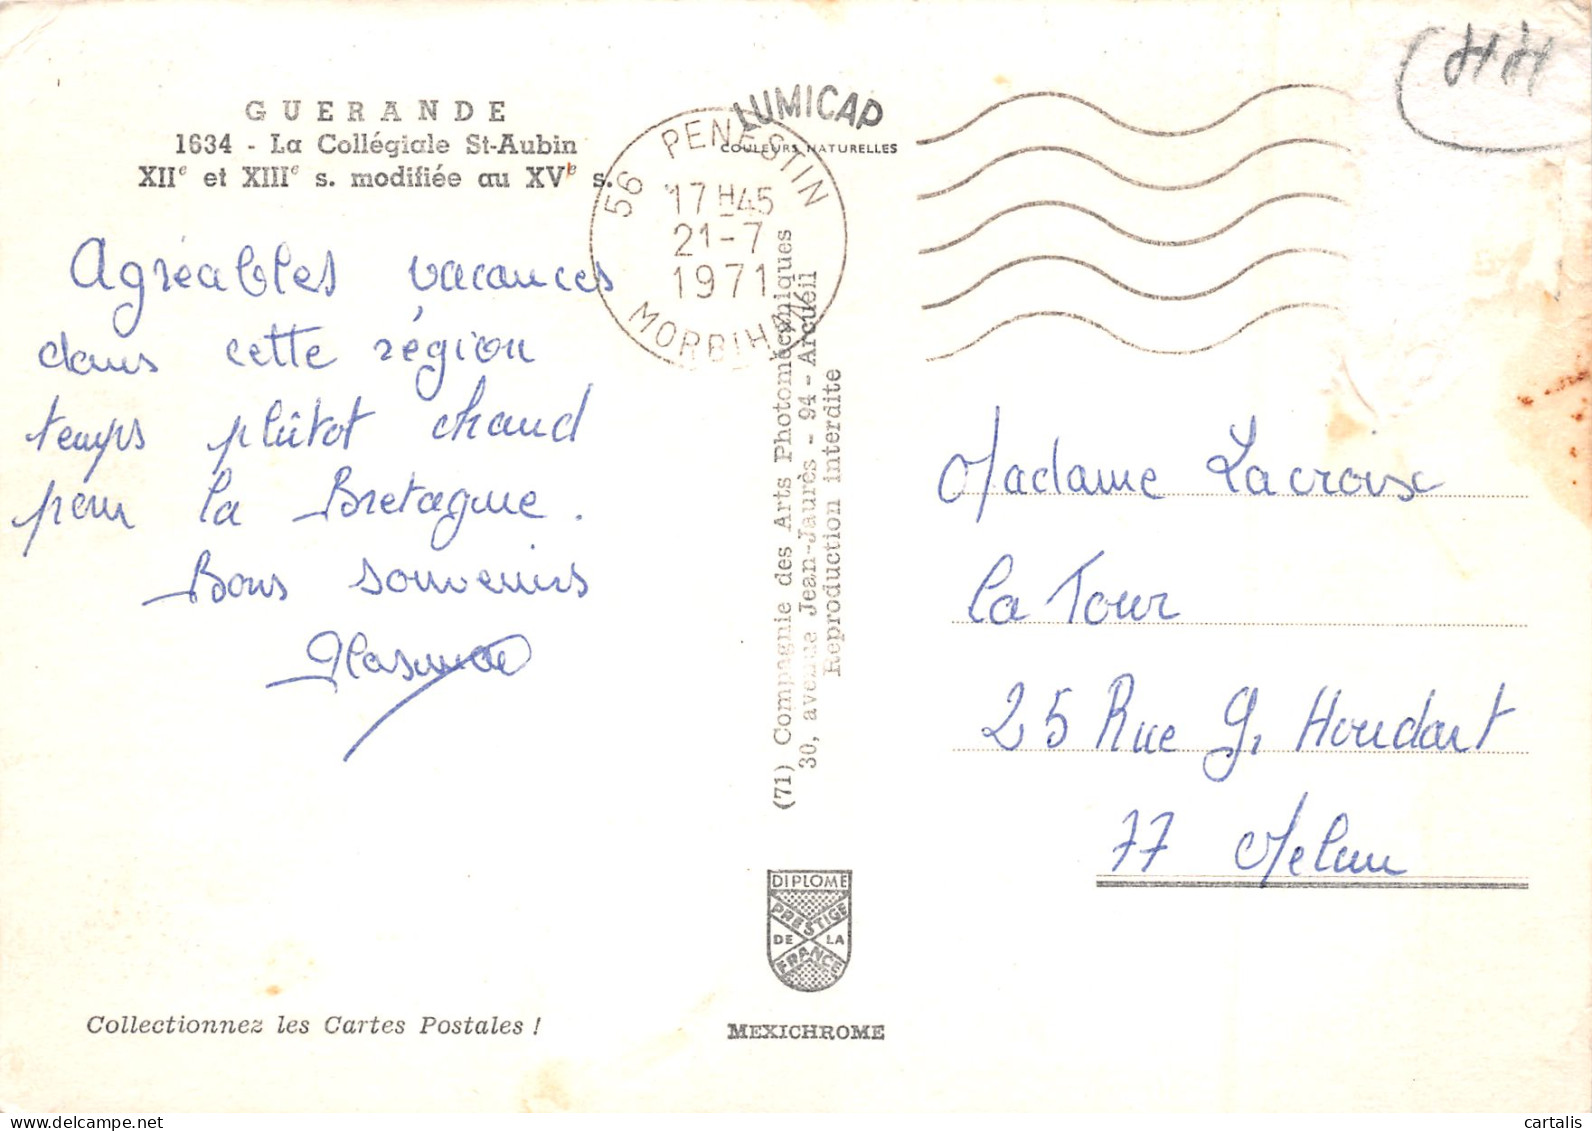 GUERANDE
1634 - La Collégiale St-Aubin
XIIe et XIIIe s. modifiée au XVe s.
Agréables vacances
dans cette région
temps plûtot chaud
pour la Bretagne.
Bons souvenirs
Collectionnez les Cartes Postales !
LUMICAP
COULEURS NATURELLES
56 PENESTIN
17H45
21-7
1971
MORBIHAN
(71) Compagnie des Arts Photomécaniques
30, avenue Jean-Jaurès - 94 - Arcueil
Reproduction interdite
DIPLOME
PRESTIGE
DE LA
FRANCE
MEXICHROME
Madame Lacroix
La Tour
25 Rue G, Houdart
77 Melun
cartalis